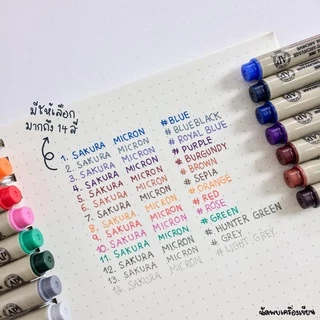 มีให้เลือก
มากถึง 14 สี
1. SAKURA MICRON # BLUE
2. SAKURA MICRON # BLUEBLACK
3. SAKURA MICRON # ROYAL BLUE
4. SAKURA MICRON # PURPLE
5. SAKURA MICRON # BURGUNDY
6. SAKURA MICRON # BROWN
7. SAKURA MICRON # SEPIA
8. SAKURA MICRON # ORANGE
9. SAKURA MICRON # RED
10. SAKURA MICRON # ROSE
11. SAKURA MICRON # GREEN
12. SAKURA MICRON # HUNTER GREEN
13. SAKURA MICRON # GREY
14. SAKURA MICRON # LIGHT GREY
นัดพบเครื่องเขียน